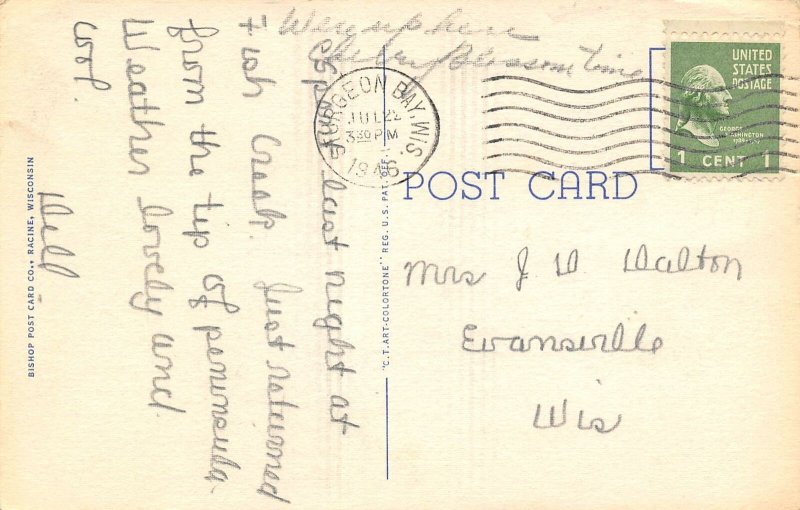 We're up here
Cherry Blossom time
UNITED
STATES
POSTAGE
GEORGE
WASHINGTON
1 CENT 1
STURGEON BAY, WIS.
JUL 22
3 30 PM
1946
POST CARD
Mrs J D Dalton
Evansville
Wis
last night at
Fish Creek. Just returned
from the tip of peninsula.
Weather lovely and
cool.
Dell
BISHOP POST CARD CO., RACINE, WISCONSIN
"C.T. ART-COLORTONE" REG. U.S. PAT. OFF.